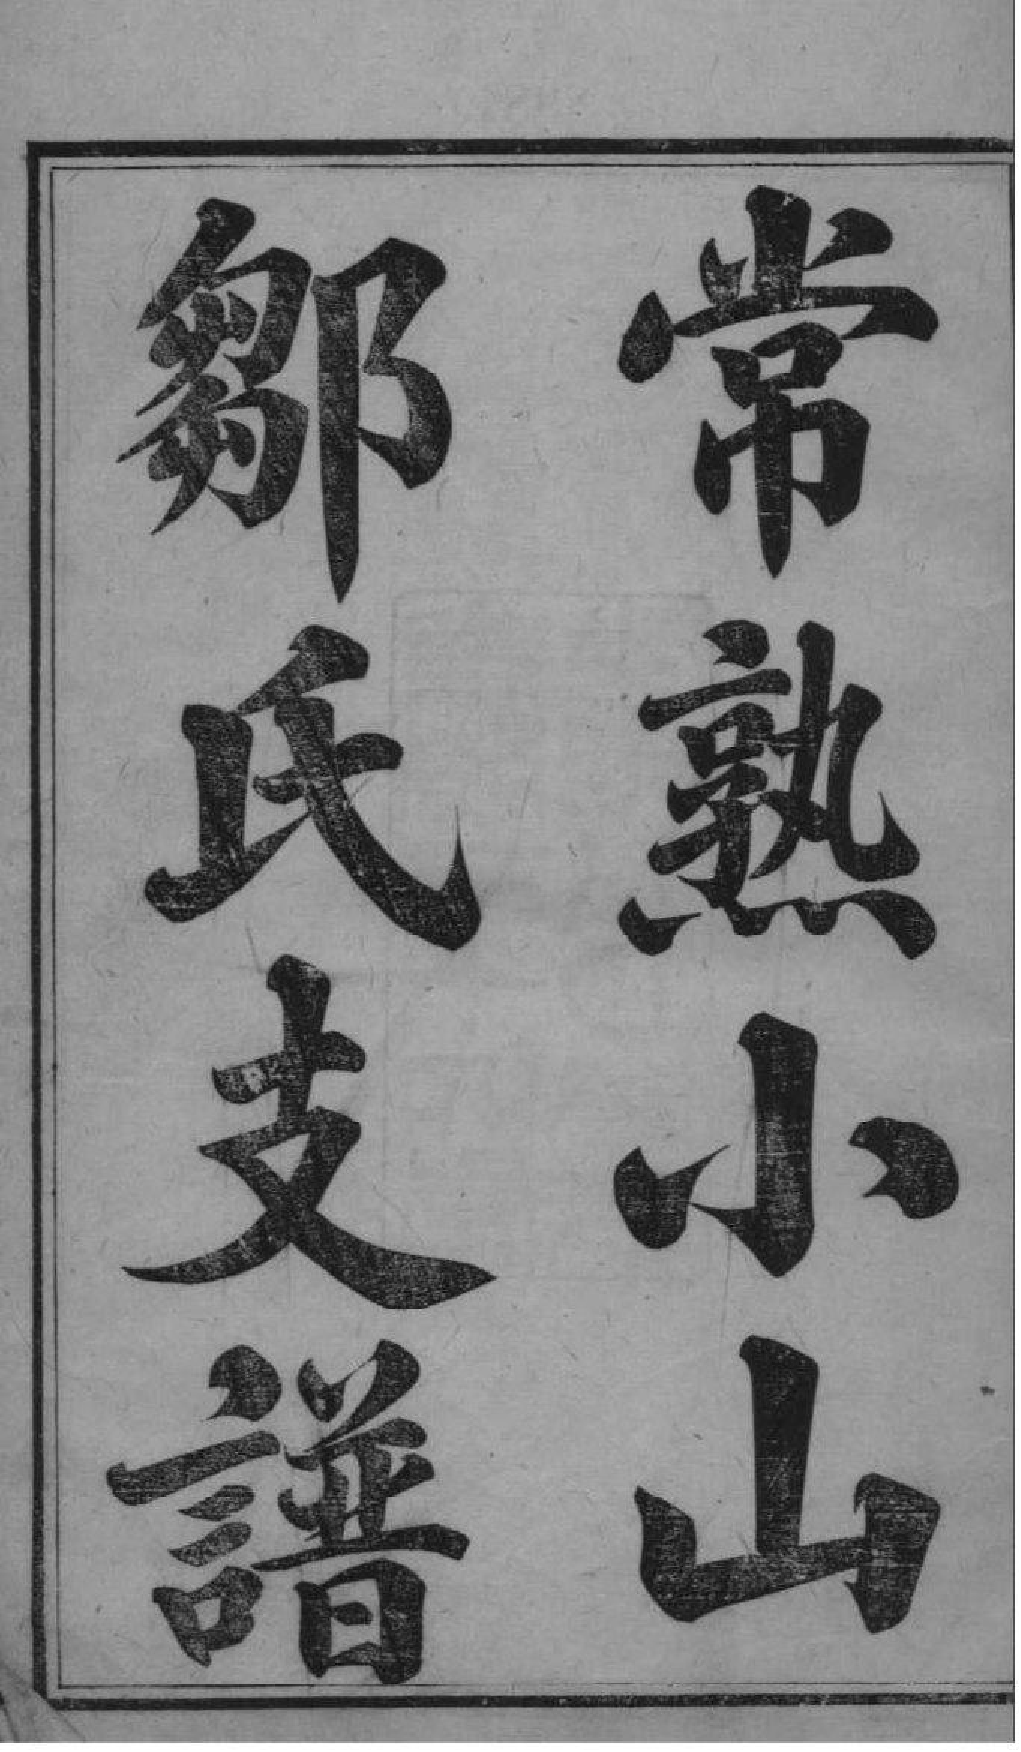 常熟小山
鄒氏支譜